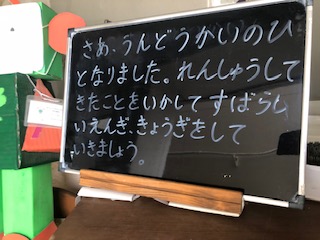 さあ、うんどうかいのひ
となりました。れんしゅうして
きたことをいかしてすばらし
いえんぎ、きょうぎをして
いきましょう。